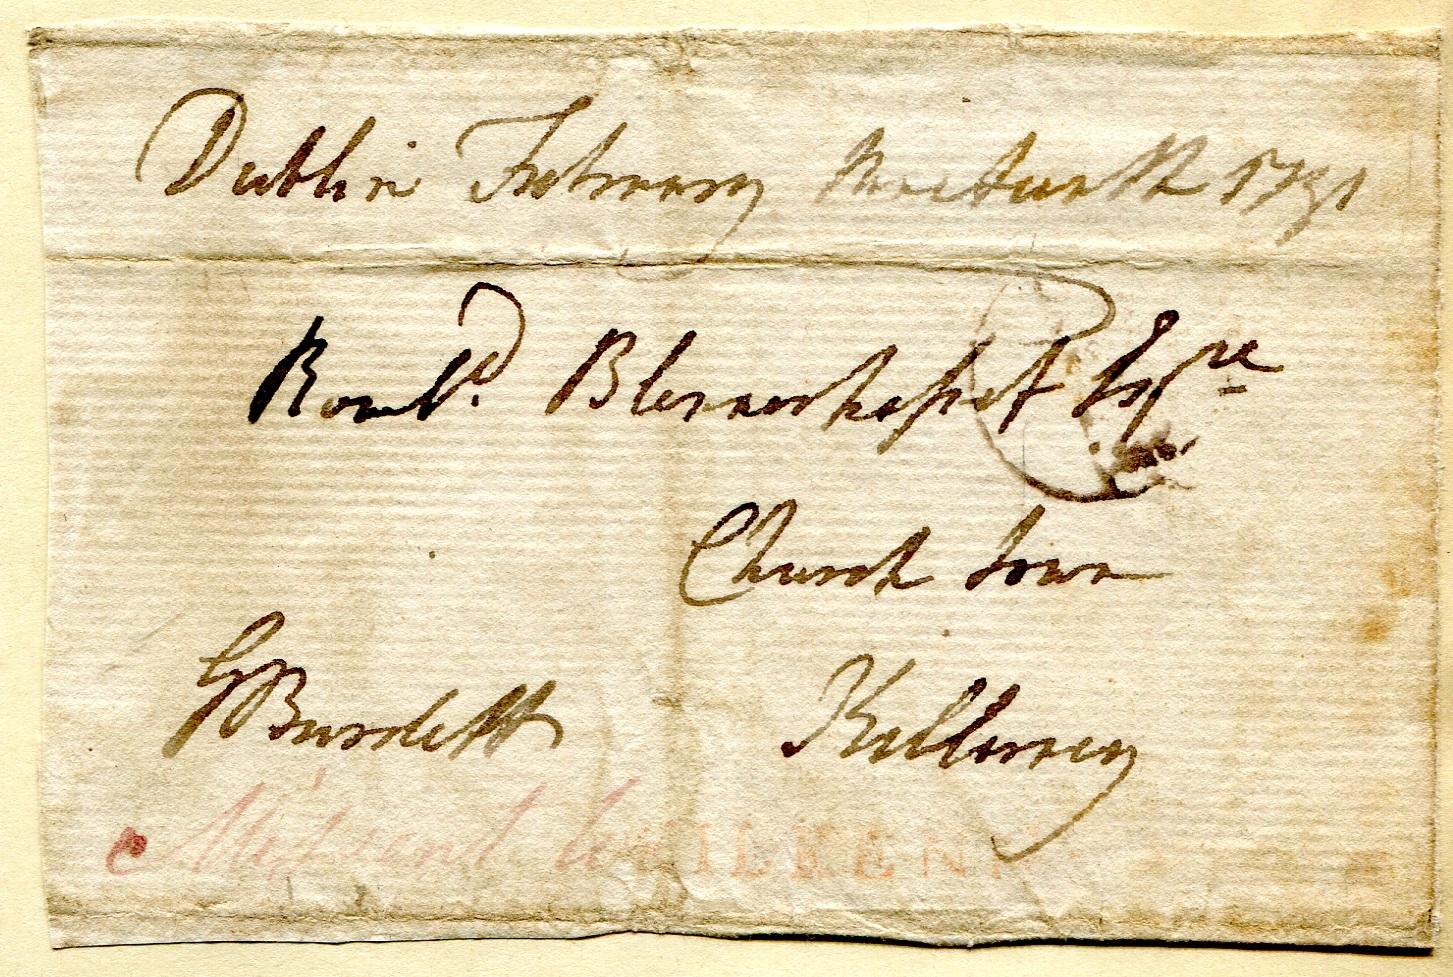 Dublin February Nineteenth 1791
Rowld. Blennerhasset Esqre
Church Town
G Burdett Killarney
Missent to KILKENNY